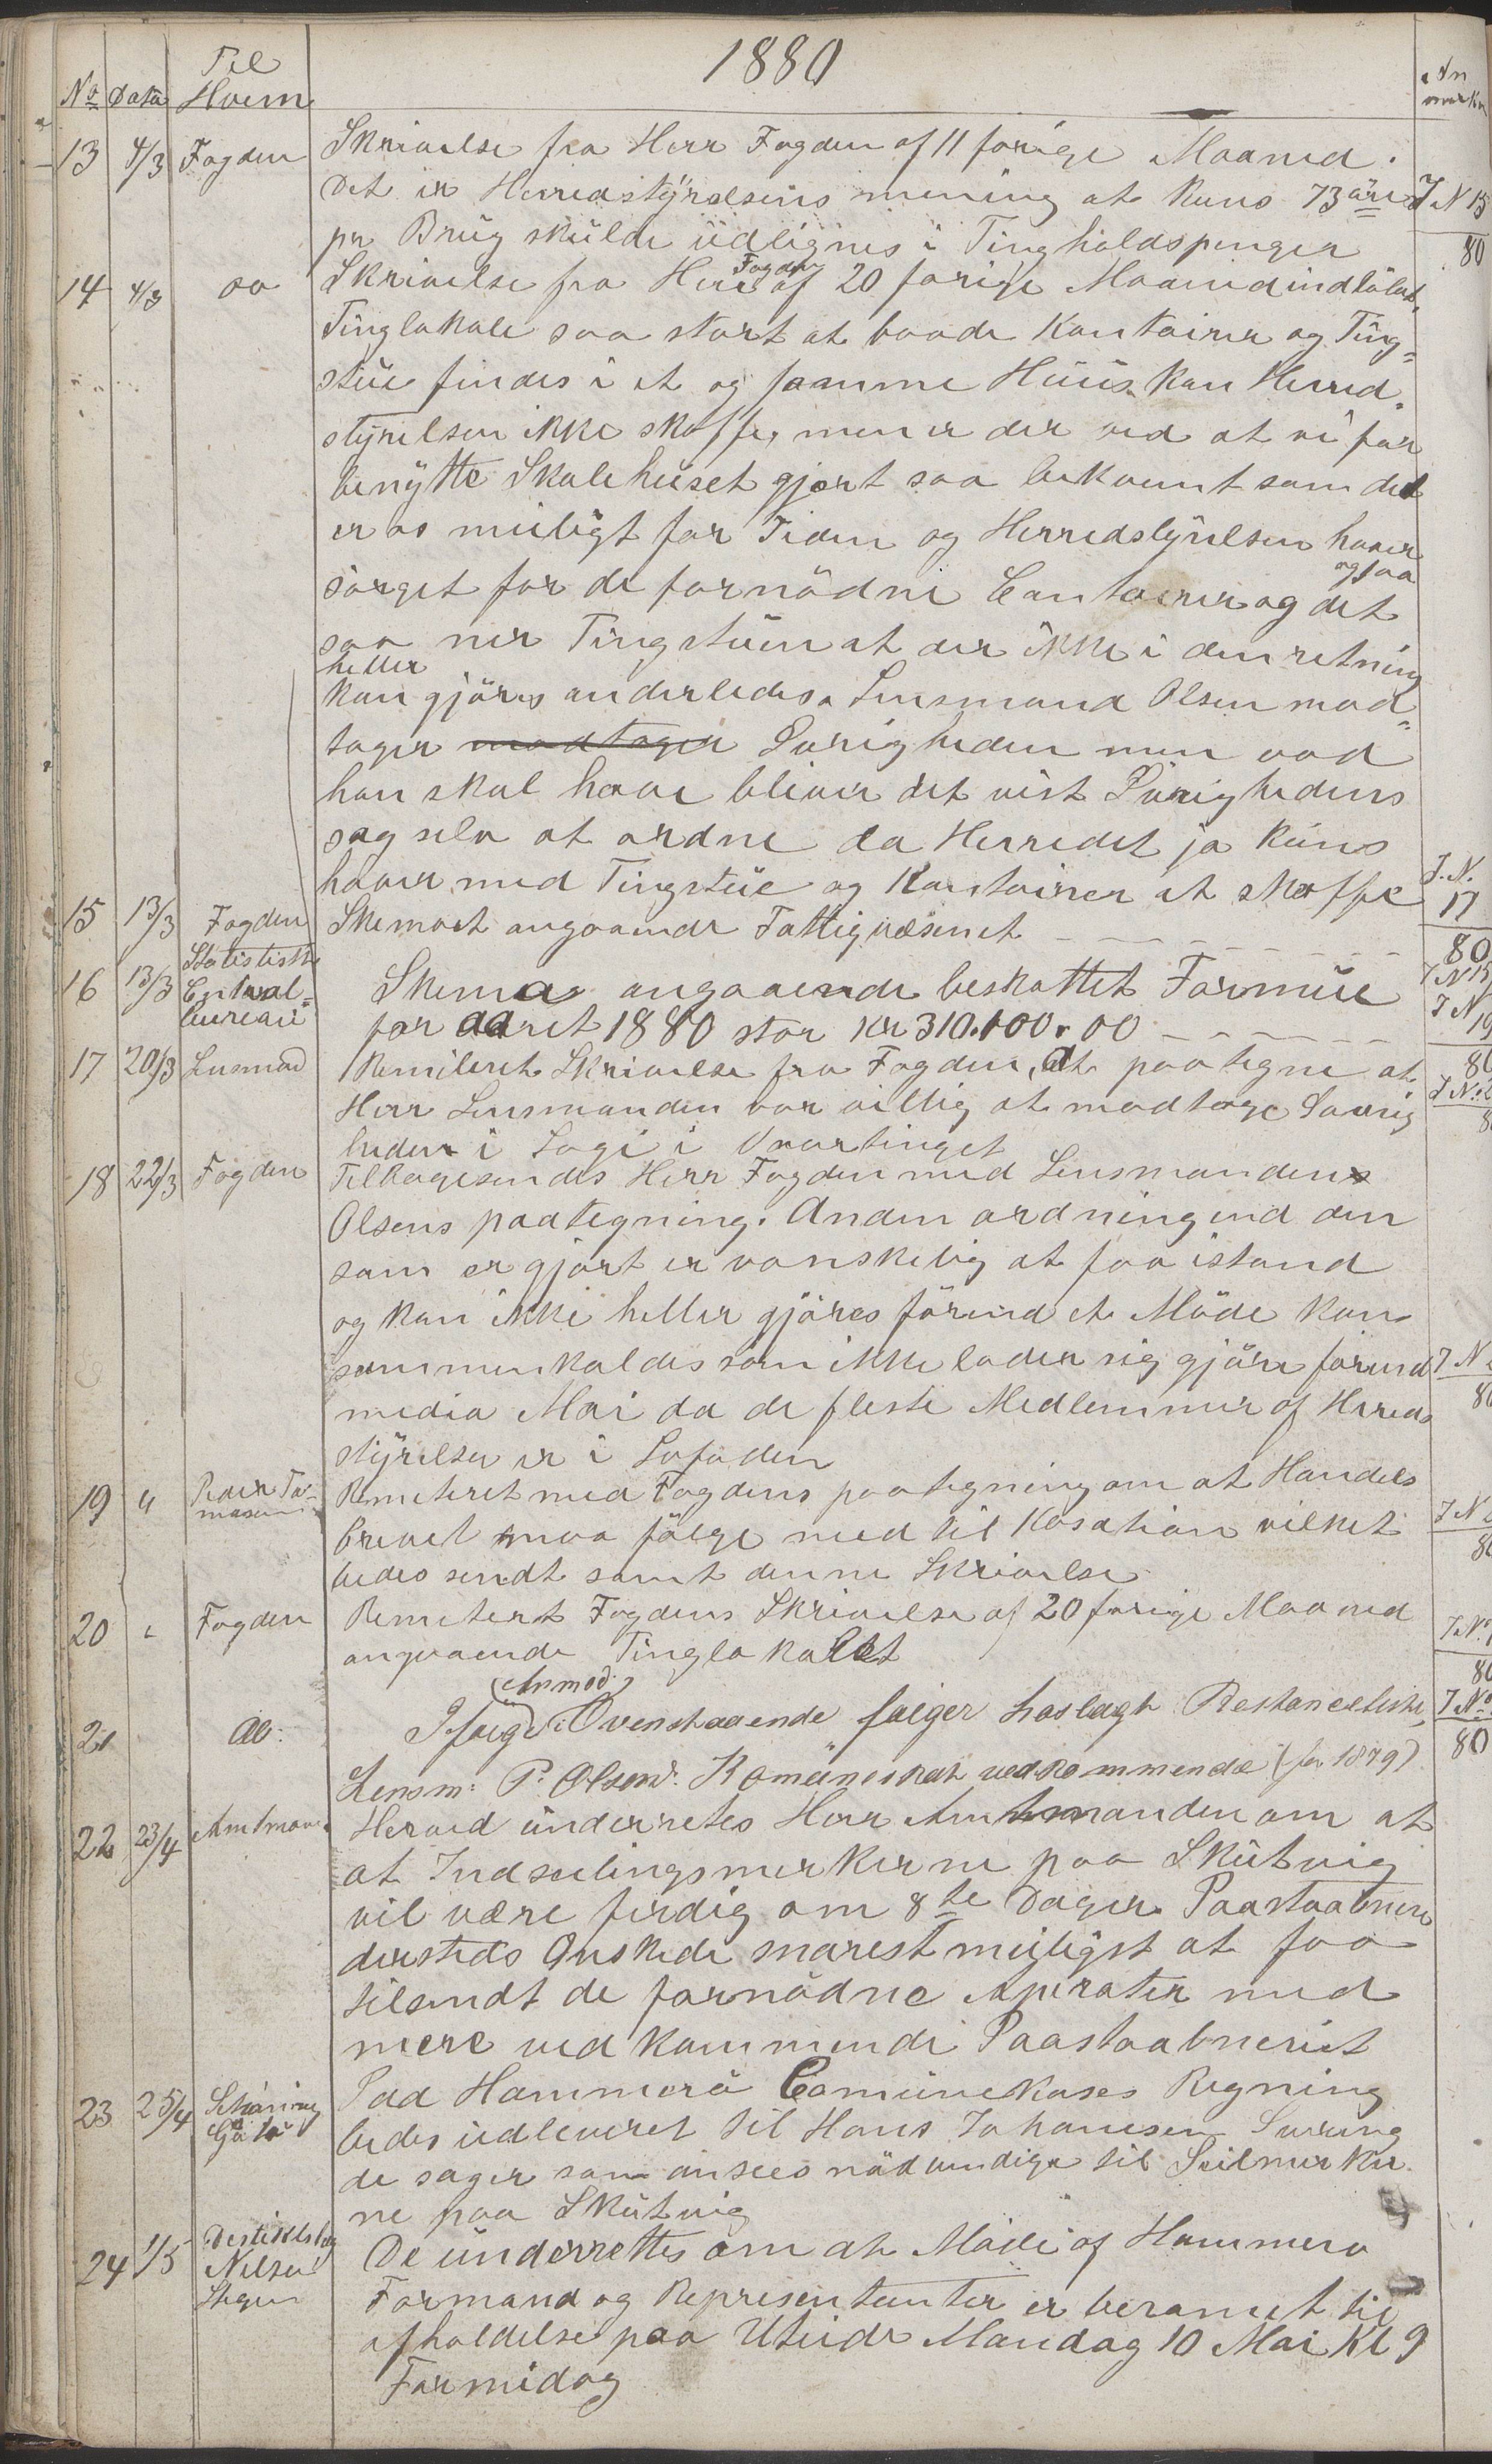 1880
Til
No Data Hvem
An
mærkn
13 4/3 Fogden Skrivelse fra Herr Fogden af 11 forige Maaned.
Det er Herredstyrelsens mening at kuns 73 øre J N 15
pr Brug skulde udlignes i Tingholdspenger 80
14 4/3 do Skrivelse fra Herr Fogden af 20 forige Maaned indløbet,
Tinglokale saa stort at baade Kontairer og Ting=
stue findes i et og samme Huus kan Herred=
styrelsen ikke skaffe, men er der ved at vi faar
benytte Skolehuset gjort saa bekvemt som det
er os muligt for Tiden og Herredstyrelsen haver
sørget for de fornødne Contoirer og det ogsaa
saa ner Tingstuen at der ikke i den retning
heller
kan gjøres anderledes. Lensmand Olsen mod=
tager modtager Øvrigheden men vad
han skal have bliver det vist Øvrighedens
sag selv at ordne da Herredet jo kuns
haver med Tingstue og Kontoirer at skaffe J. N.
15 13/3 Fogden Skemaet angaaende Fattigvæsenet 17
80
16 13/3 Statistiske Central=
bureau
Skema angaaende beskattet Formue J N 15
for aaret 1880 stor kr 310.100.00 J N 19
80
17 20/3 Lensmad Remiteret Skrivelse fra Fogden, at paategne at
Herr Lensmanden var villig at modtage Øvrig
heden i Logi i Vaartinget
18 22/3 Fogden Tilbagesendes Herr Fogden med Lensmandens
Olsens paategning. Anden ordning end den
som er gjort er vanskelig at faa istand
og kan ikke heller gjøres förend et Møde kan
sammenkaldes som ikke lader sig gjøre førend J N
media Mai da de fleste Medlemmer af Herreds 80
styrelsen er i Lofoden
19 " Peder To-
masen
Remiteret med Fogdens paategning om at Handels
brevet maa følge med til Kasation vilket J N
bedes sendt samt denne Skrivelse
20 " Fogden Remitert Fogdens Skrivelse af 20 forige Maaned
angaaende Tinglokalet J. N.
80
21 do: Ifølge (Anmod:) Ovenstaaende følger hoslagt Restanceliste, J No
Lensm: P. Olsen. Komuneskat vedkommende (for 1879) 80
22 23/4 Amtman. Herved underretes Herr Amtmanden om at
at Indseilingsmerkerne paa Skutvig
vil være ferdig om 8te Dager. Paastaabnere
dersteds Ønskede snarest muligst at faa
tilsendt de fornødne Aperater med
mere ved kommende Paastaabneriet
23 25/4 Schøning
Gåtø
Paa Hammerø Comunekases Regning
bedes udleveret til Hans Johanesen
de sager som ansees nødvendige til Seilmerker
ne paa Skutvig
24 1/5 Destiktslæg
Nilsen
Stegen
De underrettes om at Møde af Hammerø
Formand og Representanter er beramet til
afholdelse paa Uteide Mandag 10 Mai Kl 9
Formidag